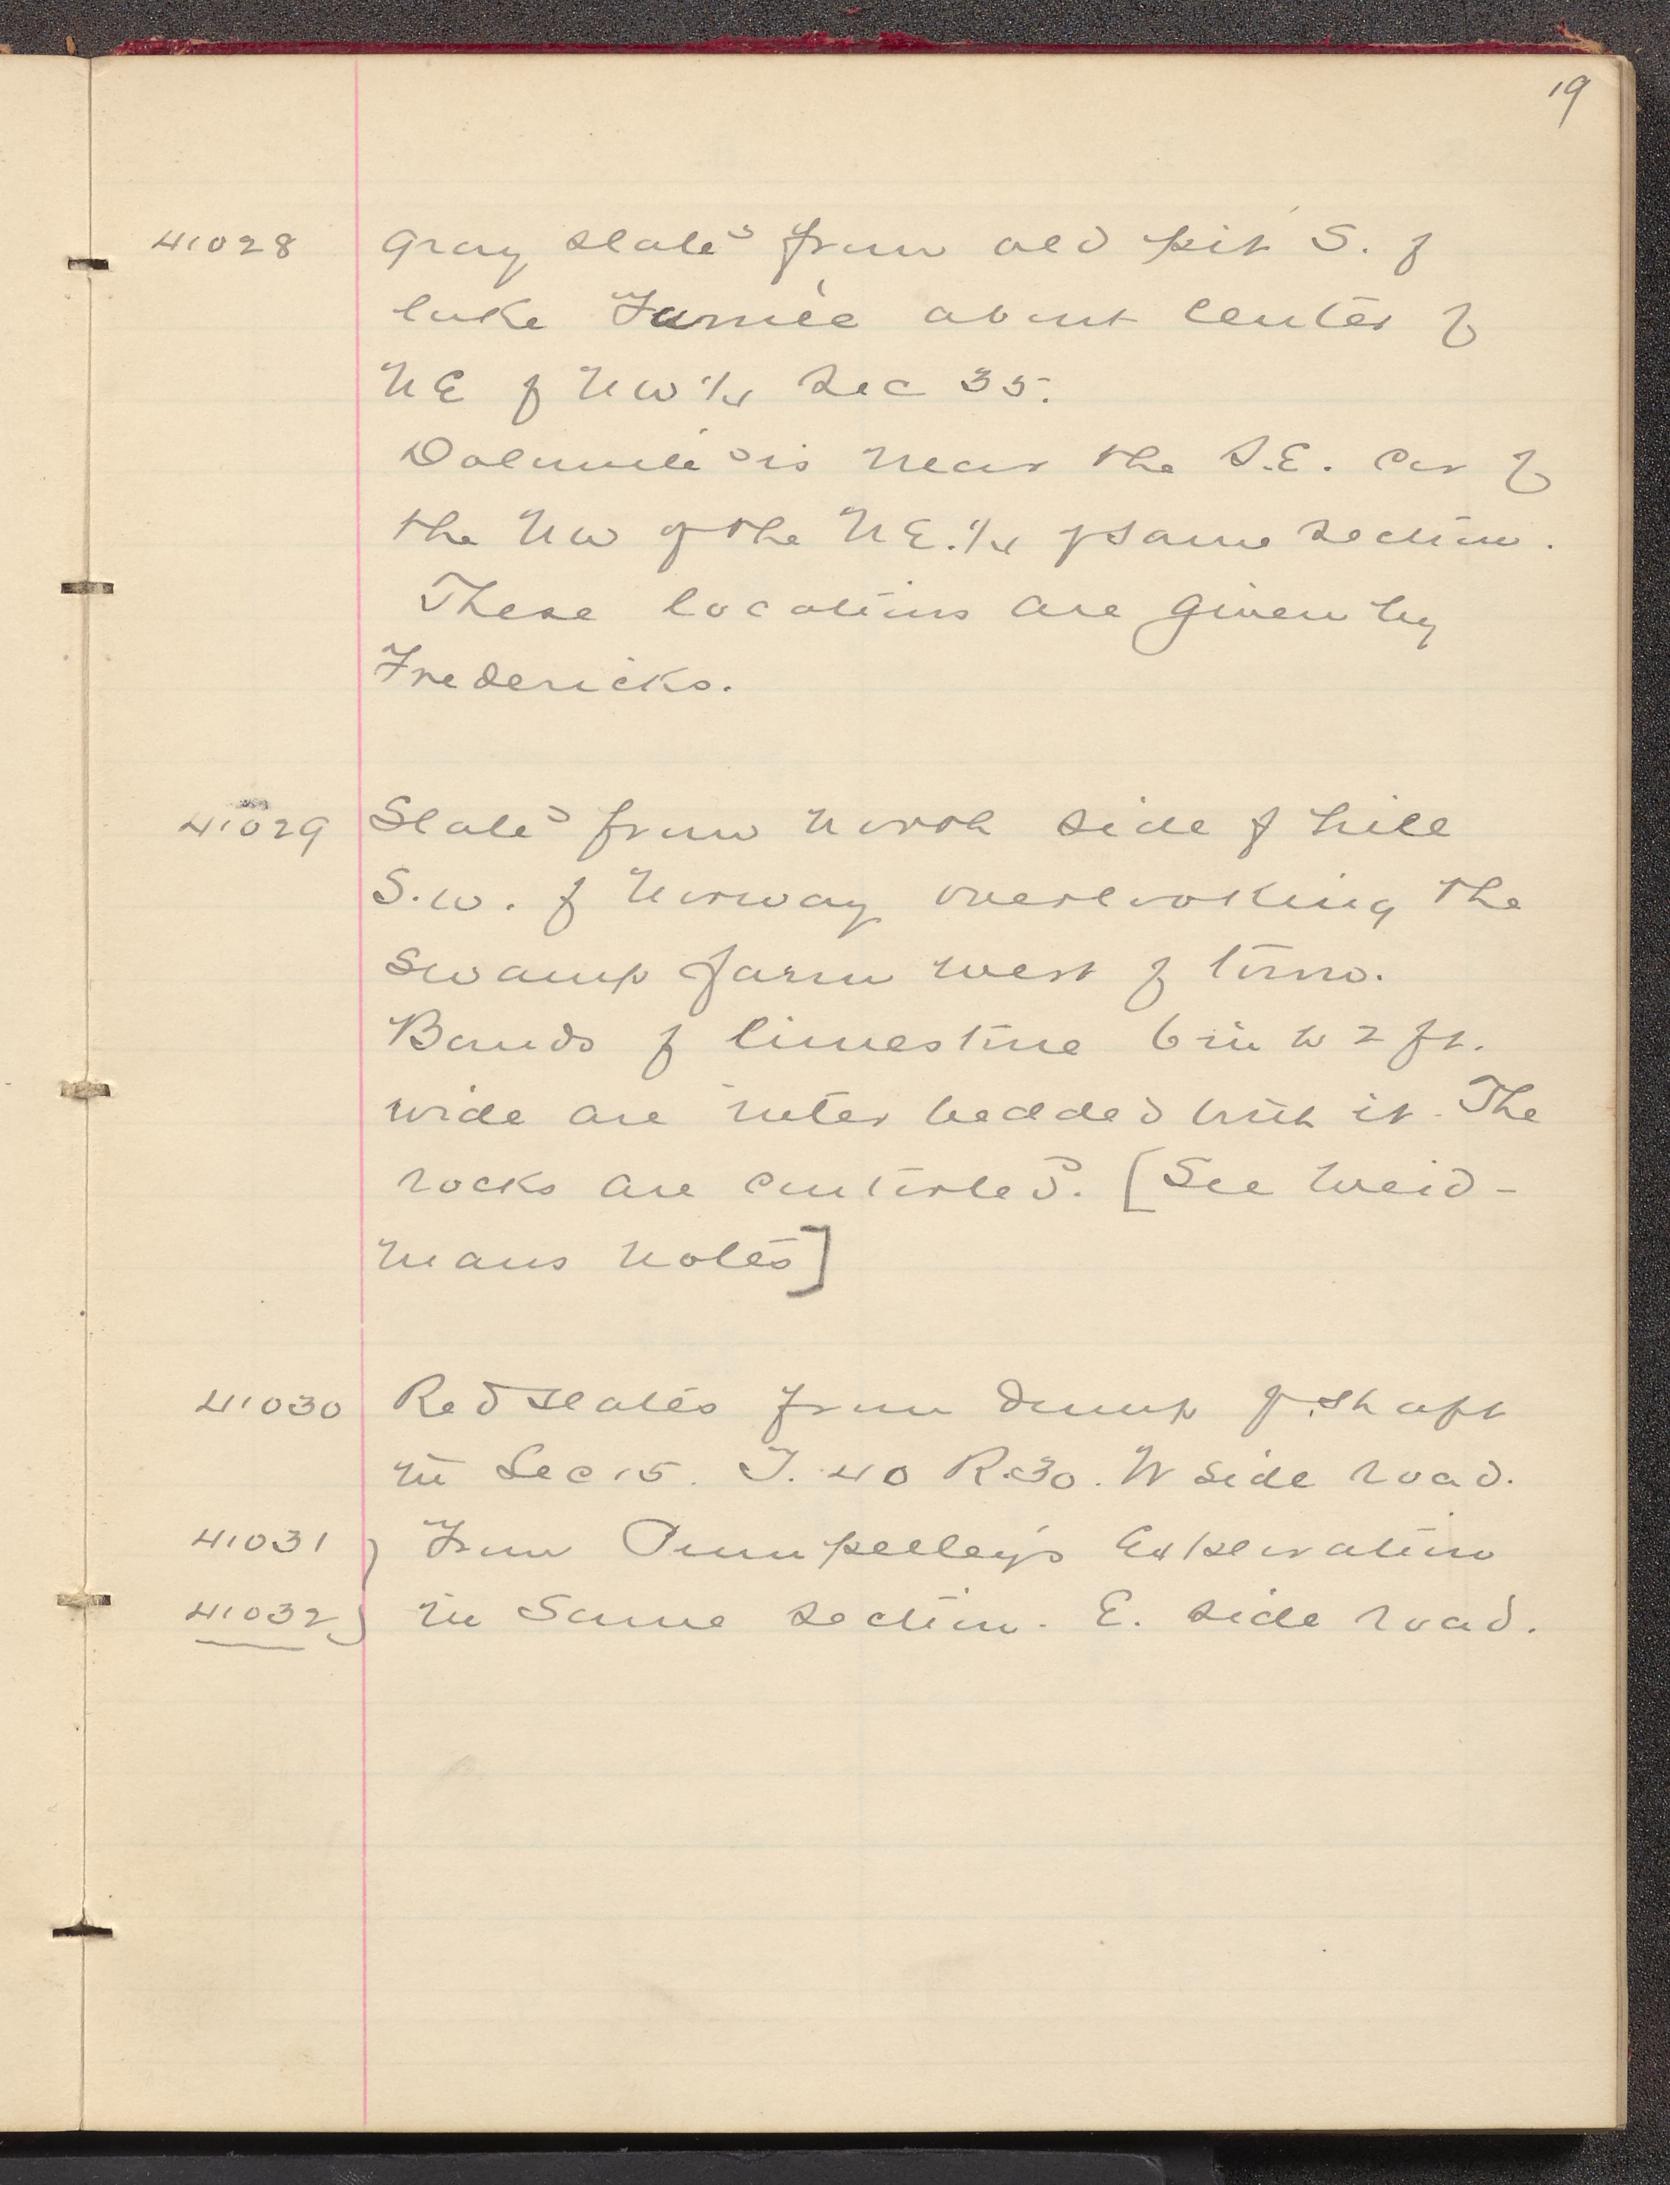 19
41028 Gray slates from old pit S. of
lake Fumée about center of
NE of NW 1/4 Sec 35.
Dolomite is near the S.E. cor of
the NW of the NE. 1/4 of same section.
These locations are given by
Fredericks.
41029 Slates from north side of hill
S.W. of Norway overlooking the
swamp farm west of town.
Bands of limestone 6 in to 2 ft.
wide are inter bedded with it. The
rocks are contorted. [See Weid-
mans notes]
41030 Red slates from dump of shaft
in Sec 15. T. 40 R. 30. W side road.
41031 } From Pumpelley's Exploration
41032 } in same section. E. side road.